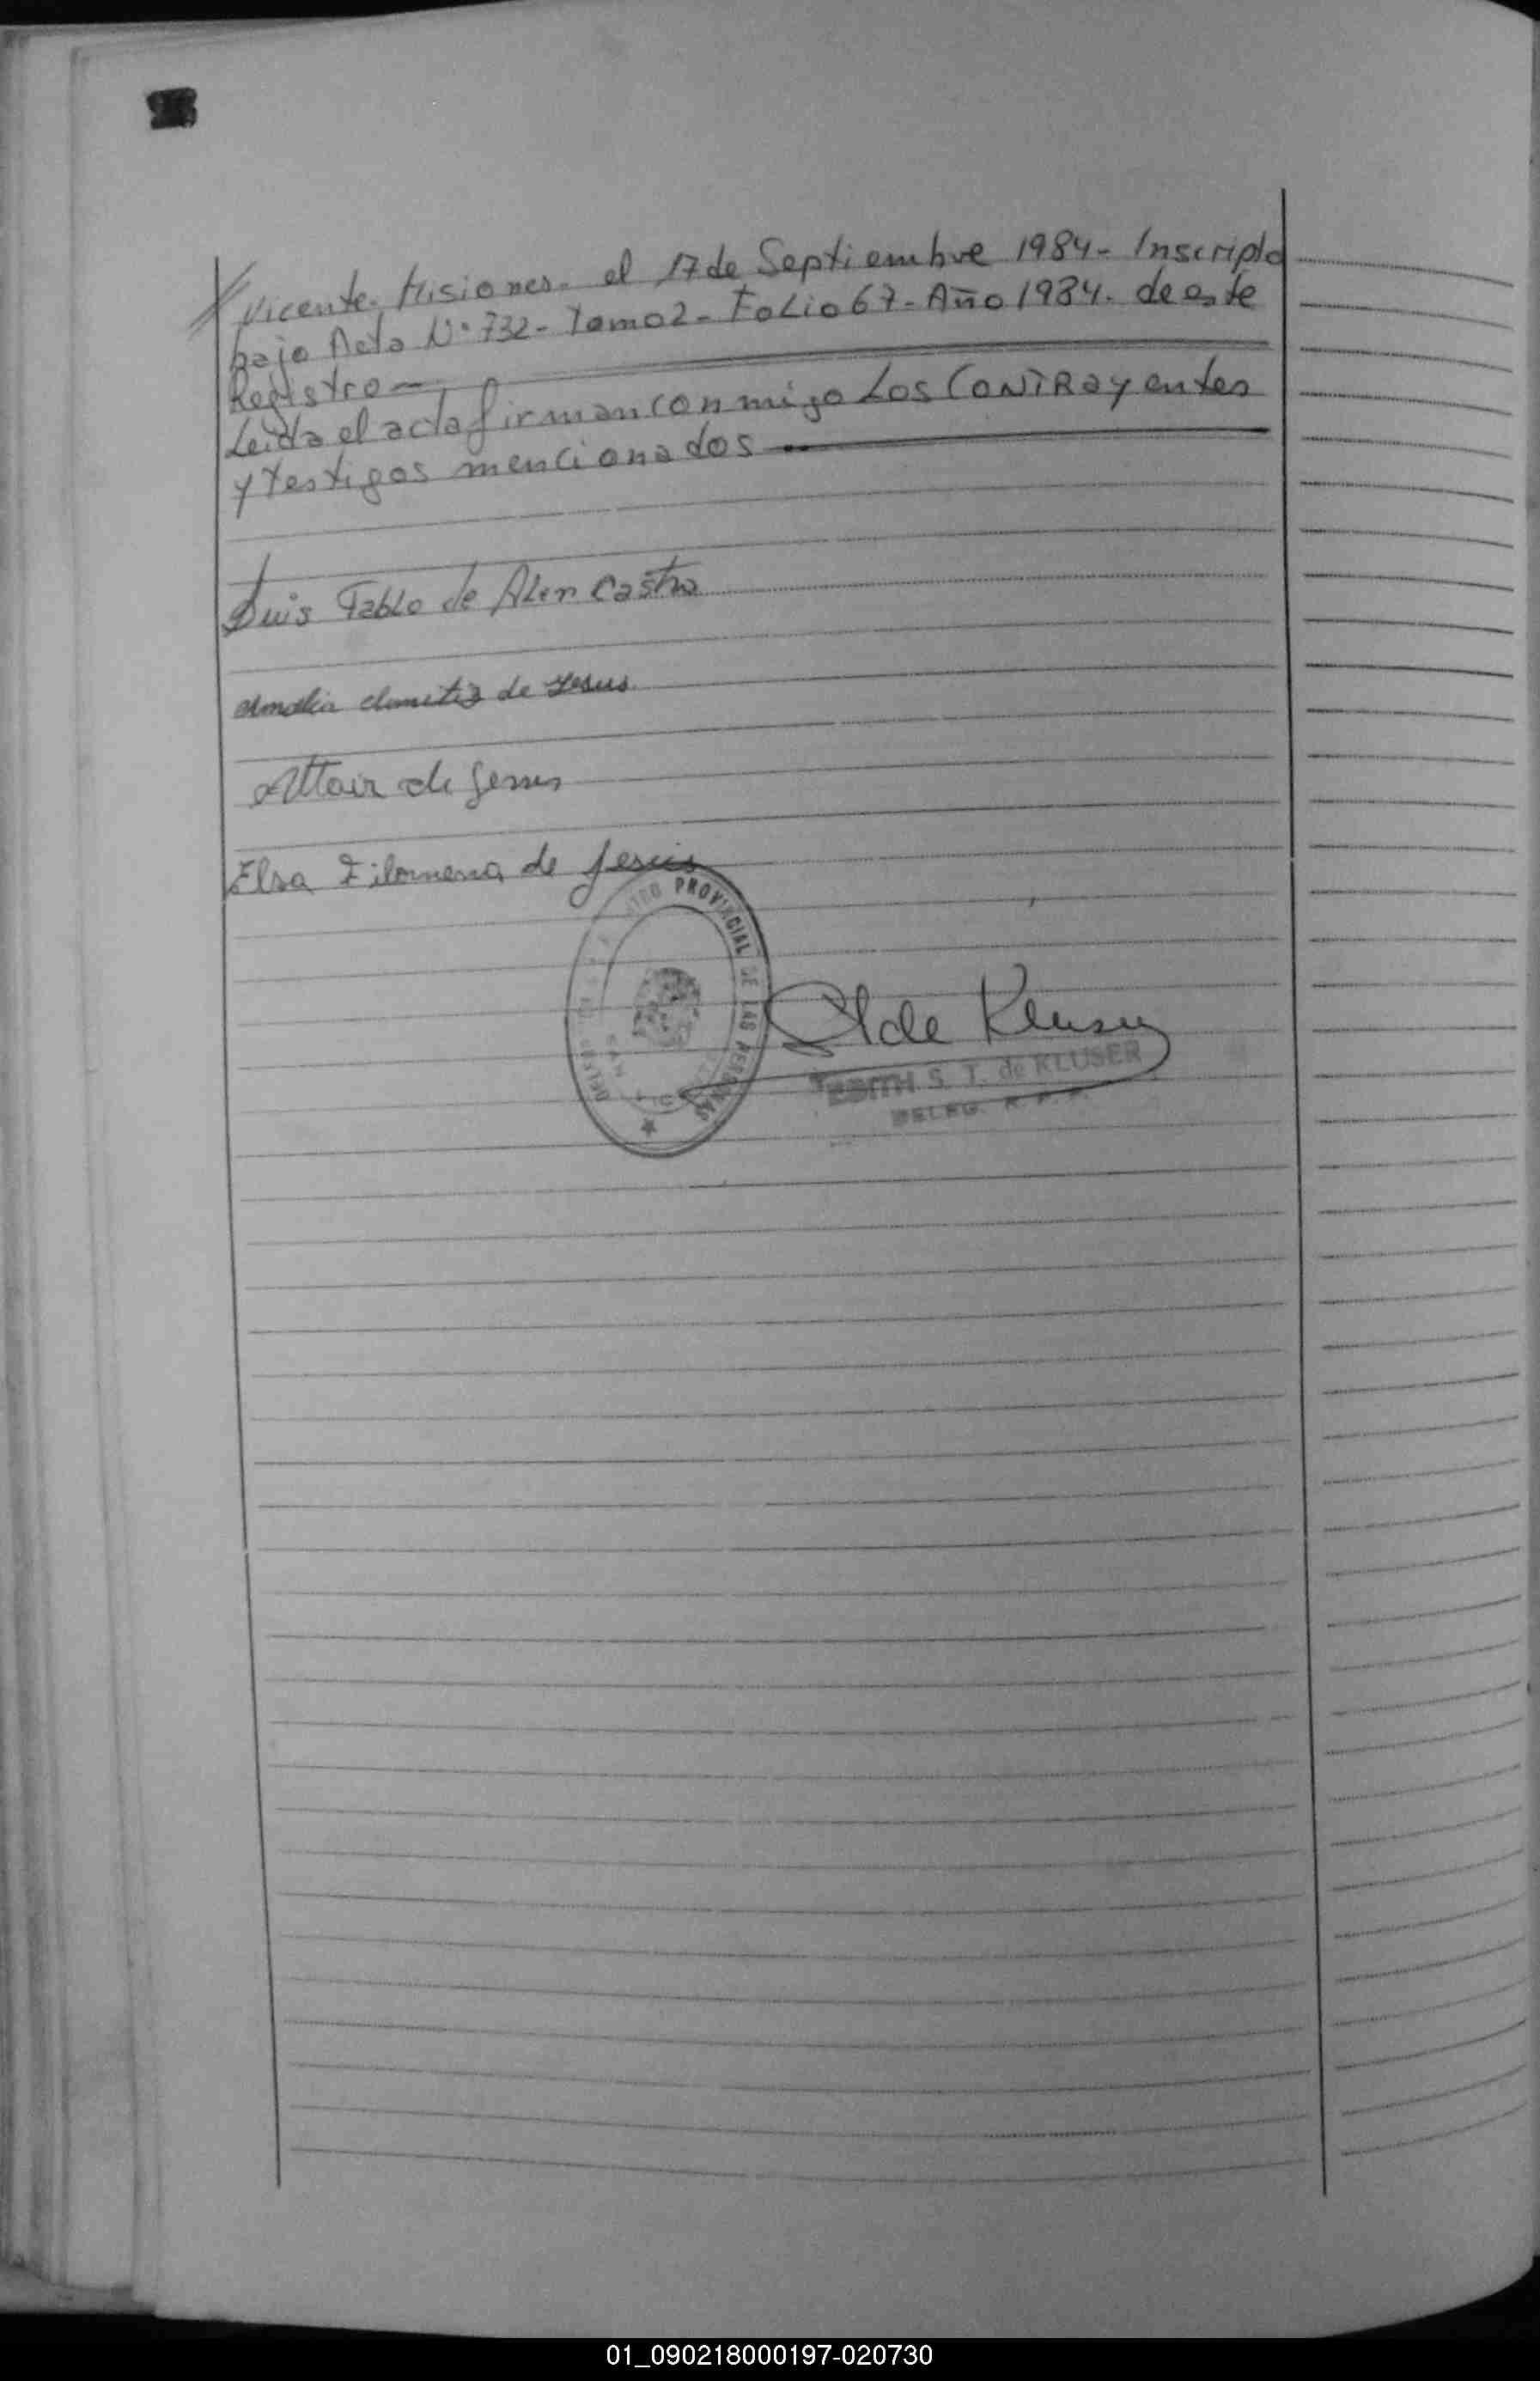 // Vicente. Misiones. el 17 de Septiembre 1984- Inscripto
bajo Acta N° 732- Tomo 2- Folio 67- Año 1984. de este
Registro—
Leida el acta firman conmigo Los CONTRayentes
y testigos mencionados —
Luis Pablo de Alencastro
Amalia de Jesus
Altair de Jesus
Elsa Filomena de Jesus
PROVINCIAL DE LAS PERSONAS
SAN VIC
de Kluser
EDITH S. T. de KLUSER
DELEG. R. P. P.
01_090218000197-020730